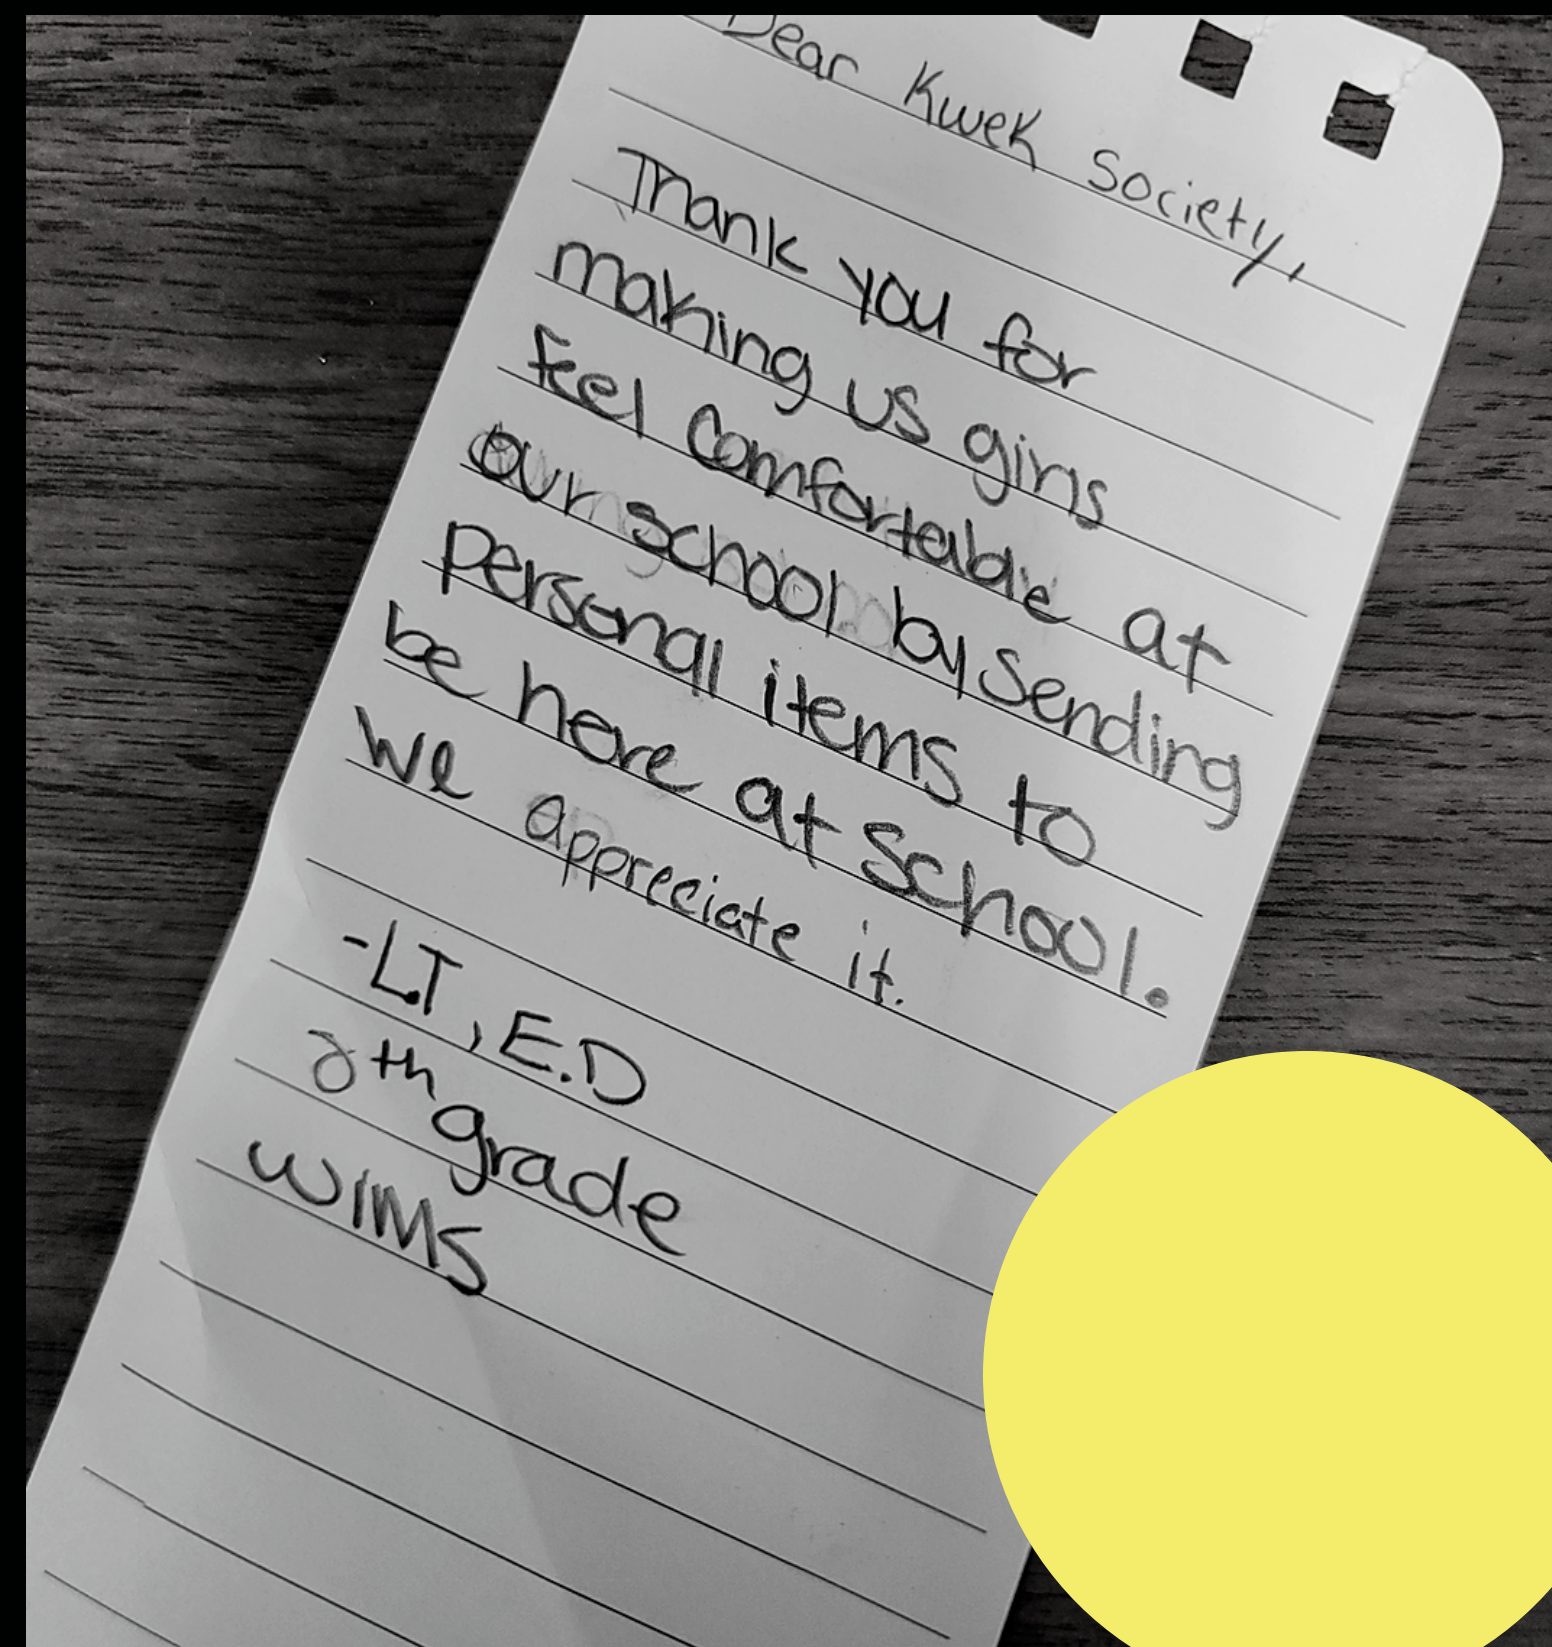 Dear Kwek Society,
Thank you for
making us girls
feel comfortable at
our school by sending
personal items to
be here at school.
We appreciate it.
-L.T, E.D
8th grade
WIMS